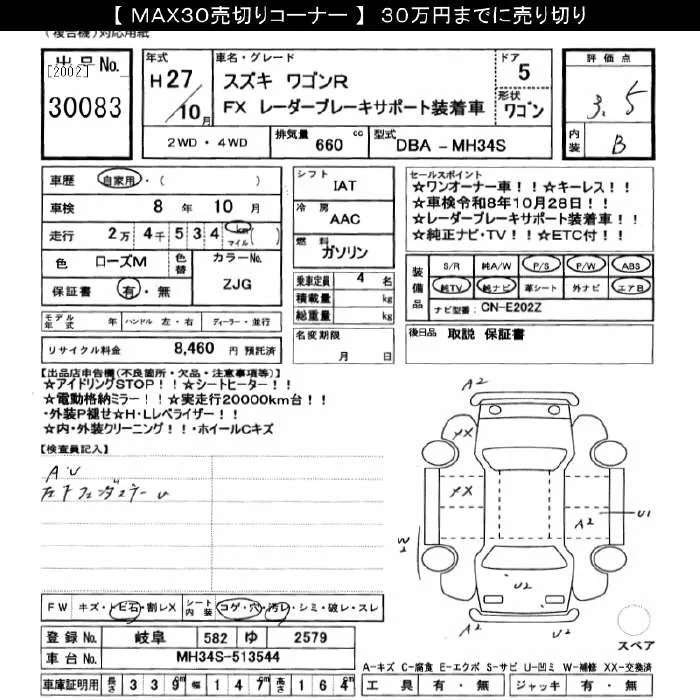 【 MAX30売切りコーナー 】 30万円までに売り切り
(複合機)対応用紙
出品No.
[2002]
30083
年式
H27/10月
車名・グレード
スズキ ワゴンR
FX レーダーブレーキサポート装着車
ドア
5
形状
ワゴン
評価点
3.5
内装
B
2WD・4WD
排気量 660 cc
型式 DBA - MH34S
車歴 自家用・( )
車検 8 年 10 月
走行 2万 4千 5 3 4 km マイル ( )
色 ローズM 色替 カラーNo. ZJG
保証書 有・無
シフト
IAT
冷房
AAC
燃料
ガソリン
乗車定員 4 名
積載量 kg
総重量 kg
セールスポイント
☆ワンオーナー車!!☆キーレス!!
☆車検令和8年10月28日!!
☆レーダーブレーキサポート装着車!!
☆純正ナビ・TV!!☆ETC付!!
装備品
S/R 純A/W P/S P/W ABS
純TV 純ナビ 革シート 外ナビ エアB
ナビ型番 CN-E202Z
モデル年式 年 ハンドル 左・右 ディーラー・並行
リサイクル料金 8,460 円 預託済
名変期限
月 日
後日品 取説 保証書
【出品店申告欄(不良箇所・欠品・注意事項等)】
☆アイドリングSTOP!!☆シートヒーター!!
☆電動格納ミラー!!☆実走行20000km台!!
・外装P褪せ☆H・Lレベライザー!!
☆内・外装クリーニング!!・ホイールCキズ
【検査員記入】
A・U
左下フェンダステーU
A2
XX
XX
A2
U1
W2
U2
U2
A2
スペア
FW キズ・トビ石・割レX シート内装 コゲ・穴・汚レ・シミ・破レ・スレ
登録No. 岐阜 582 ゆ 2579
車台No. MH34S-513544
A-キズ C-腐食 E-エクボ S-サビ U-凹ミ W-補修 XX-交換済
車庫証明用 長さ 3 3 9 cm 幅 1 4 7 cm 高さ 1 6 4 cm
工具 有・無 ジャッキ 有・無